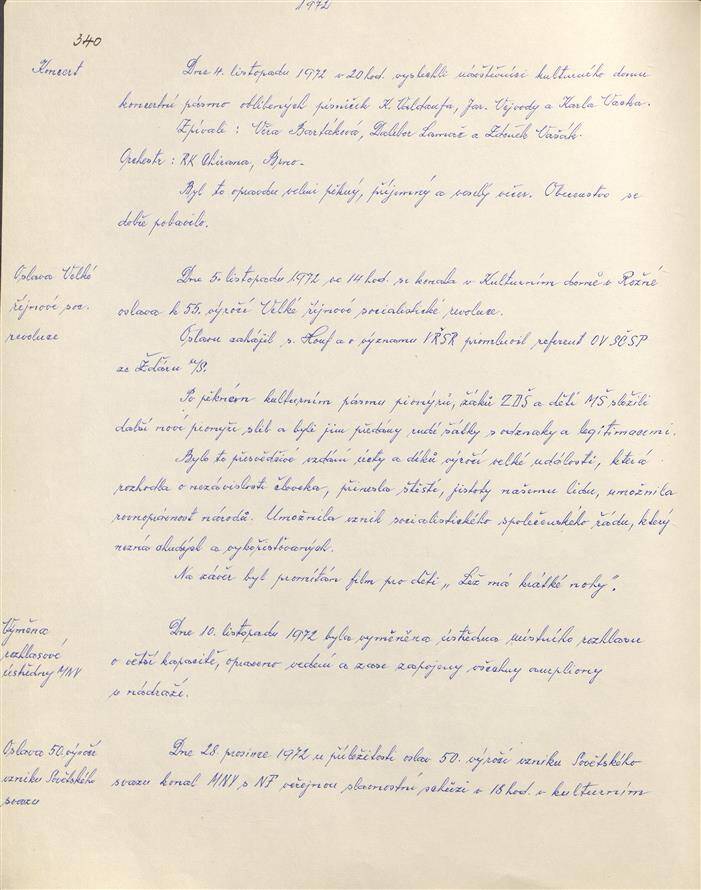 1972
340
Koncert
Dne 4. listopadu 1972 v 20 hod. vyslechli návštěvníci kulturního domu
koncertní pásmo oblíbených písniček K. Valdaufa, Jar. Vejvody a Karla Vacka.
Zpívali: Věra Bartáková, Dalibor Lamač a Zdeněk Vašák.
Orchestr: RK Chirana, Brno.
Byl to opravdu velmi pěkný, příjemný a veselý večer. Obecenstvo se
dobře pobavilo.
Oslava Velké
říjnové soc.
revoluce
Dne 5. listopadu 1972 ve 14 hod. se konala v Kulturním domě v Rožné
oslava k 55. výročí Velké říjnové socialistické revoluce.
Oslavu zahájil s. Houf a o významu VŘSR promluvil referent OV SČSP
ze Žďáru n/S.
Po pěkném kulturním pásmu pionýrů, žáků ZDŠ a dětí MŠ složili
další noví pionýři slib a byli jim předány rudé šátky s odznaky a legitimacemi.
Bylo to přesvědčivé vzdání úcty a díků výročí velké události, která
rozhodla o nezávislosti člověka, přinesla štěstí, jistoty našemu lidu, umožnila
rovnoprávnost národů. Umožnila vznik socialistického společenského řádu, který
nezná chudých a vykořisťovaných.
Na závěr byl promítán film pro děti „Lež má krátké nohy".
Výměna
rozhlasové
ústředny MNV
Dne 10. listopadu 1972 byla vyměněna ústředna místního rozhlasu
o větší kapacitě, opraveno vedení a zase zapojeny všechny ampliony
v nádraží.
Oslava 50. výročí
vzniku Sovětského
svazu
Dne 28. prosince 1972 u příležitosti oslav 50. výročí vzniku Sovětského
svazu konal MNV s NF veřejnou slavnostní schůzi v 18 hod. v kulturním